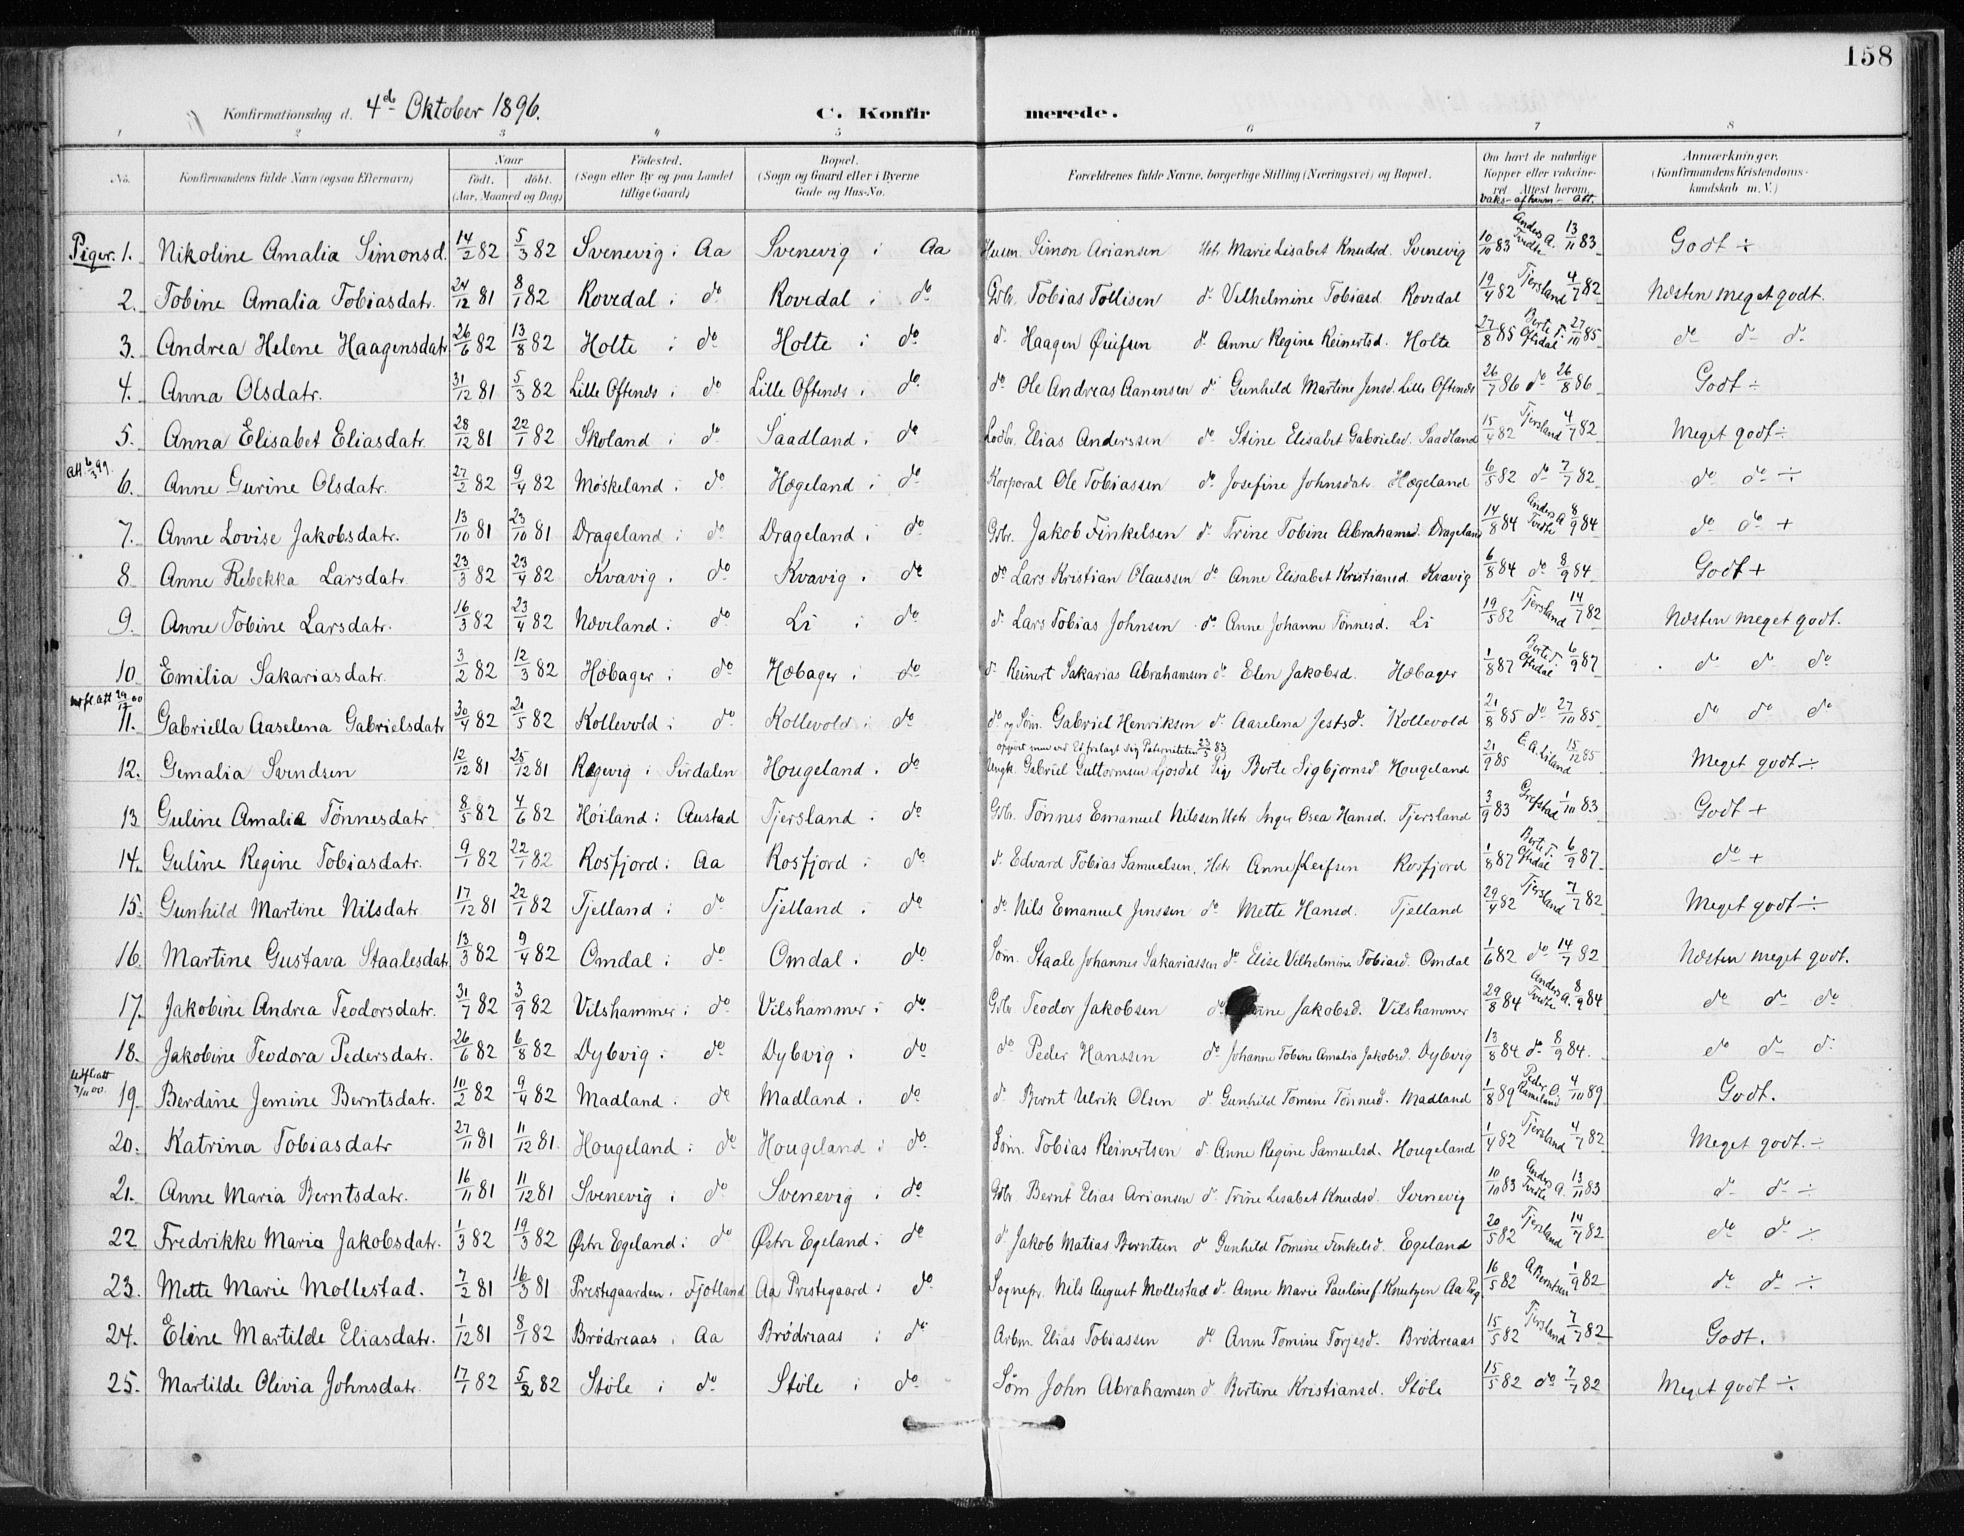 158
Konfirmationsdag d. 4de Oktober 1896. C. Konfirmerede.
1 2 3 4 5 6 7 8
No. Konfirmandens fulde Navn (ogsaa Efternavn) Naar født. døbt. (Aar, Maaned og Dag) Fødested. (Sogn eller By og paa Landet tillige Gaard) Bopæl. (Sogn og Gaard eller i Byerne Gade og Hus-No. Forældrenes fulde Navne, borgerlige Stilling (Næringsvei) og Bopæl. Om havt de naturlige Kopper eller vakcineret. Attest herom. Anmærkninger. (Konfirmandens Kristendomskundskab m. V.)
vaks- af hvem- att.
Piger. 1. Nikoline Amalia Simonsd. 14/2 82 5/3 82 Svenevig i Aa Svenevig i Aa Husm. Simon Ariansen Hstr. Marie Lisabet Knudsd. Svenevig 10/10 83 Anders A. Tvedte 13/11 83 Godt ÷
2. Tobine Amalia Tobiasdatr. 24/12 81 8/1 82 Rovedal i do Rovedal i do Gbr. Tobias Tollisen do Vilhelmine Tobiasd. Rovedal 19/4 82 Tjersland 4/7 82 Næsten meget godt.
3. Andrea Helene Haagensdatr. 26/6 82 13/8 82 Holte i do Holte i do do Haagen Øuifsen do Anne Regine Reinertsd. Holte 27/8 85 Berte T. Oftedal 27/10 85 do do do
4. Anna Olsdatr. 31/12 81 5/3 82 Lille Oftenes i do Lille Oftenes i do do Ole Andreas Aanensen do Gunhild Martine Jensd. Lille Oftenes 26/7 86 do 26/8 86 Godt ÷
5. Anna Elisabet Eliasdatr. 28/12 81 22/1 82 Skoland i do Saadland i do Lodbr. Elias Anderssen do Stine Elisabet Gabrielsd. Saadland 15/4 82 Tjersland 4/7 82 Meget godt ÷
att. 6/3 99.
6. Anne Gurine Olsdatr. 27/2 82 9/4 82 Møskeland i do Hægeland i do Korporal Ole Tobiassen do Josefine Johnsdatr. Hægeland 6/5 82 do 7/7 82 do do ÷
7. Anne Lovise Jakobsdatr. 13/10 81 23/10 81 Drageland i do Drageland i do Gbr. Jakob Finkelsen do Trine Tobine Abrahamsd. Drageland 14/8 84 Anders A. Tvedte 8/9 84 do do +
8. Anne Rebekka Larsdatr. 23/3 82 23/4 82 Kvavig i do Kvavig i do do Lars Kristian Claussen do Anne Elisabet Kristiansd. Kvavig 6/8 84 do 8/9 84 Godt +
9. Anne Tobine Larsdatr. 16/3 82 23/4 82 Næveland i do Li i do do Lars Tobias Johnsen do Anne Johanne Tønnesd. Li 19/5 82 Tjersland 14/7 82 Næsten meget godt.
10. Emilia Sakariasdatr. 3/2 82 12/3 82 Hæbager i do Hæbager i do do Reinert Sakarias Abrahamsen do Elen Jakobsd. Hæbager 1/8 87 Berte T. Oftedal 6/9 87 do do do
11. Gabriella Aaselena Gabrielsdatr 30/4 82 21/5 82 Kollevold i do Kollevold i do do og Søm. Gabriel Henriksen do Aaselena Jestsd. Kollevold 21/8 85 do 27/10 85 do do do
12. Gemalia Svendsen 12/12 81 25/12 81 Regevig i Sirdalen Hougeland i do Ungk. Gabriel Guttormsen Ljosdal Pige Berte Sigbjørnsd Hougeland 21/9 85 E. A. Liland 15/12 85 Meget godt ÷
13. Guline Amalia Tönnesdatr. 8/5 82 4/6 82 Høiland i Austad Tjersland i do Gbr. Tønnes Emanuel Nilssen Hstr Inger Osea Hansd. Tjersland 3/9 83 Grefstad 1/10 83 Godt +
14. Guline Regine Tobiasdatr. 9/1 82 22/1 82 Rosfjord i Aa Rosfjord i do do Edvard Tobias Samuelsen. Hstr Anne f. Leifsen Rosfjord 1/8 87 Berte T. Oftedal 6/9 87 do +
15. Gunhild Martine Nilsdatr 17/12 81 22/1 82 Tjelland i do Tjelland i do do Nils Emanuel Jenssen do Mette Hansd. Tjelland 29/4 82 Tjersland 7/7 82 Meget godt ÷
16. Martine Gustava Staalesdatr. 13/3 82 9/4 82 Omdal i do Omdal i do Søm. Staale Johannes Sakariassen do Elise Vilhelmine Tobiasd. Omdal 1/6 82 do 14/7 82 Næsten meget godt.
17. Jakobine Andrea Teodorsdatr. 31/7 82 3/9 82 Vilshammer i do Vilshammer i do Gbr Teodor Jakobsen do Jakobsd. Vilshammer 29/8 84 Anders A. Tvedte 8/9 84 do do do
18. Jakobine Teodora Pedersdatr. 26/6 82 6/8 82 Dybvig i do Dybvig i do do Peder Hanssen do Johanne Tobine Amalia Jakobsd. Dybvig 13/8 84 do 8/9 84. do do do
19. Berdine Jemine Berntsdatr. 10/2 82 9/4 82 Madland i do Madland i do do Bernt Ulrik Olsen do Gunhild Tomine Tønnesd. Madland 1/8 89 Peder O. Ramsland 4/10 89 Godt.
20. Katrina Tobiasdatr 27/11 81 11/12 81. Hougeland i do Hougeland i do Søm. Tobias Reinertsen do Anne Regine Samuelsd. Hougeland 1/4 82 Tjersland 4/7 82 Meget godt. ÷
21. Anne Maria Berntsdatr. 16/11 81 11/12 81 Svenevig i do Svenevig i do Gbr Bernt Elias Ariansen do Trine Lisabet Knudsd. Svenevig 10/10 83 Anders Tvedte A. 13/11 83 do do ÷
22. Fredrikke Maria Jakobsdatr. 1/3 82 19/3 82 Østre Egeland i do Østre Egeland i do do Jakob Matias Berntsen do Gunhild Tomine Finkelsd. Egeland 20/5 82 Tjersland 14/7 82 do do ÷
23. Mette Marie Mollestad. 7/2 81 16/3 81 Prestegaarden i Fjotland Aa Prestegaard i do Sognepr. Nils August Mollestad do Anne Marie Pauline f. Knutzen Aa Prg 16/5 82 A. Berntsen 1/9 82 do do ÷
24. Eline Martilde Eliasdatr. 1/12 81 8/1 82 Brødreaas i Aa Brødreaas i do Arbm. Elias Tobiassen do Anne Tomine Torjesd. Brødreaas 15/5 82 Tjersland 7/7 82 Godt.
25. Martilde Olivia Johnsdatr. 17/1 82 5/2 82 Støle i do Støle i do Søm John Abrahamsen do Bertine Kristiansd. Støle 15/5 82 do 7/7 82 Meget godt ÷